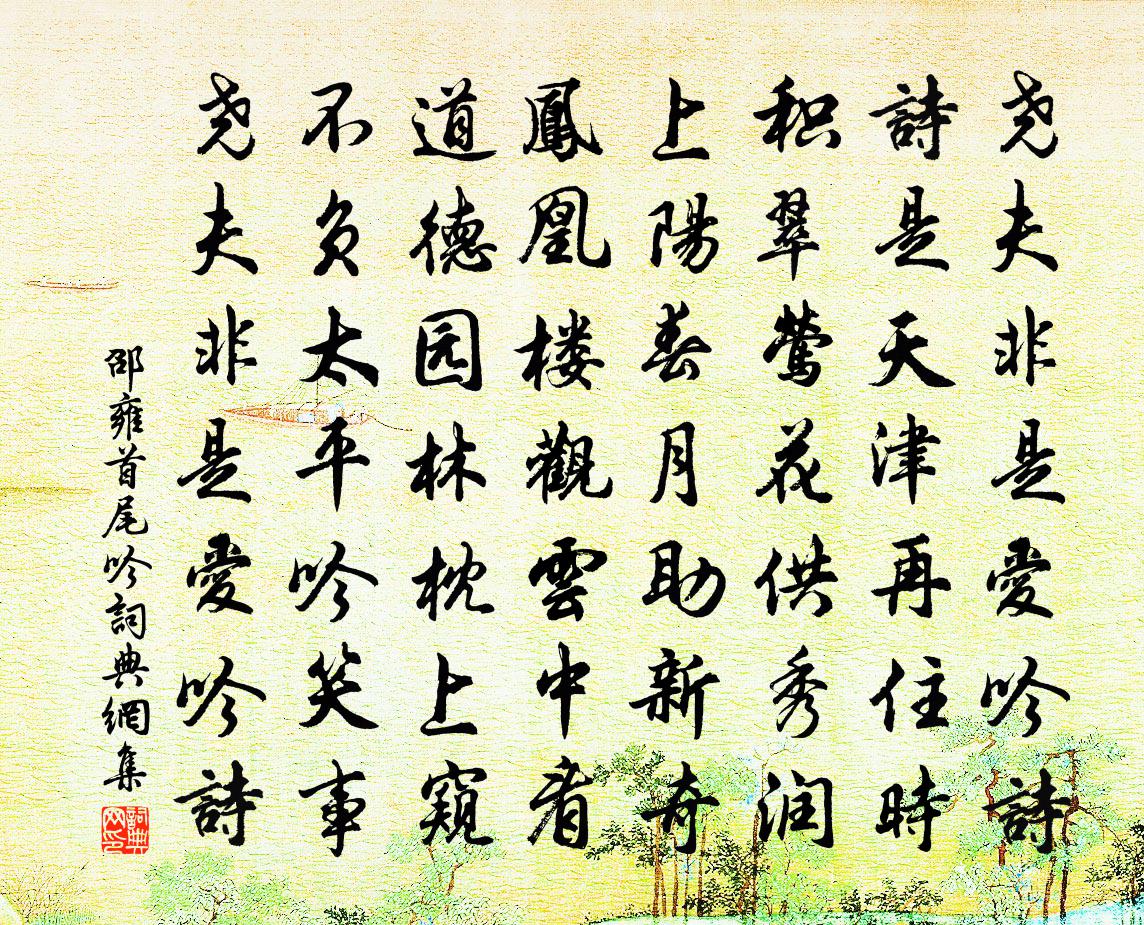 尧夫非是愛吟詩
詩是天津再住時
积翠鶯花供秀润
上陽春月助新奇
鳳凰楼觀雲中看
道德园林枕上窺
不负太平吟笑事
尧夫非是愛吟詩
邵雍首尾吟詞典網集
詞典
网印